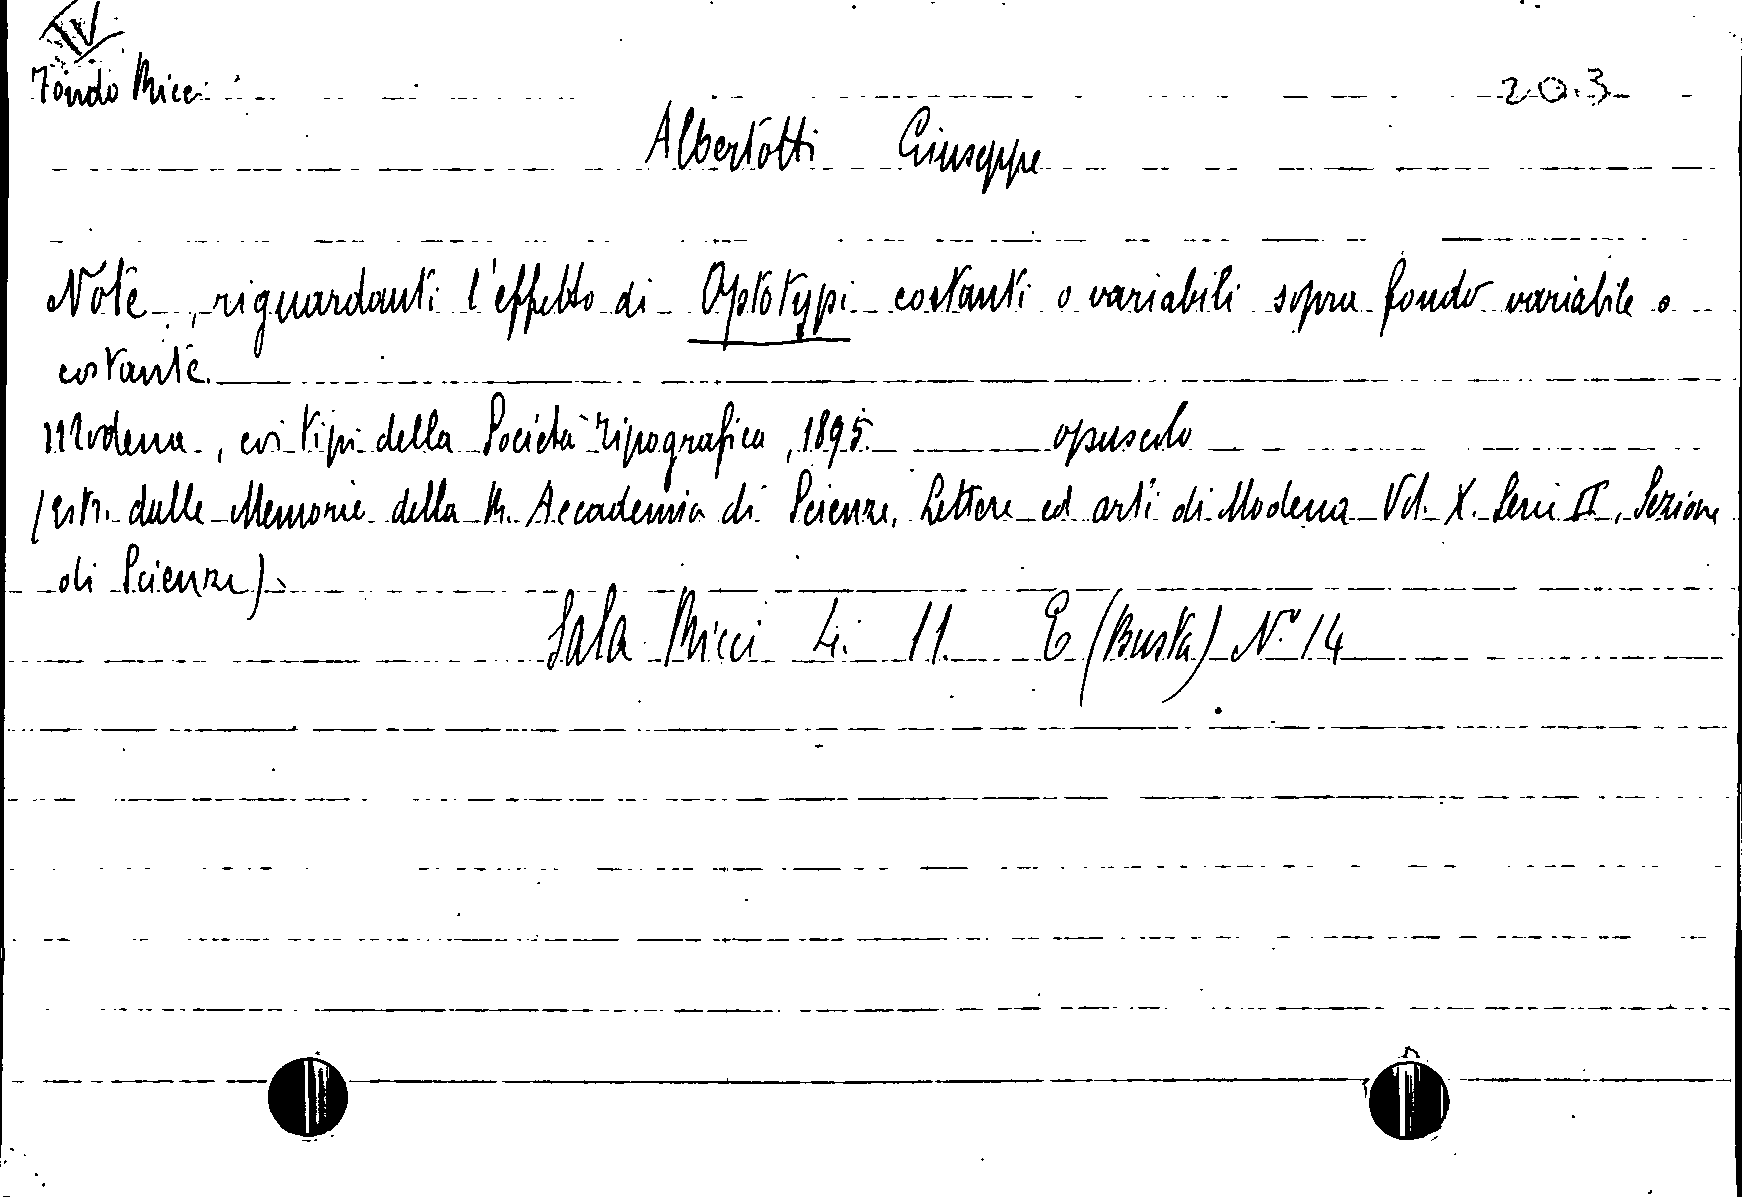 IV
Fondo Ricci 20.3
Albertotti Giuseppe
Note, riguardanti l'effetto di Optotypi costanti o variabili sopra fondo variabile o
costante.
Modena, coi tipi della Società Tipografica, 1895. opuscolo
(Estr. dalle Memorie della R. Accademia di Scienze, Lettere ed arti di Modena Vol. X. Serie II, Sezione
di Scienze).
Sala Ricci 4. 11. E (Busta) N.º 14